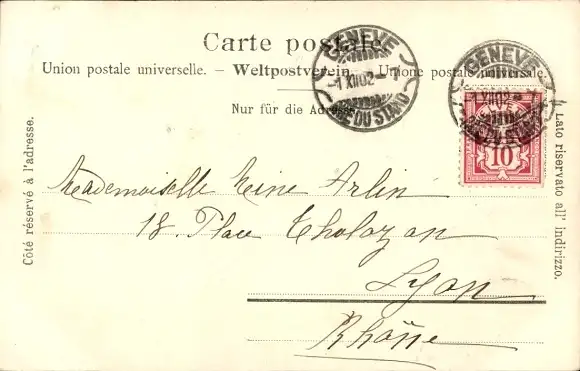 Carte postale.
Union postale universelle. – Weltpostverein. – Unione postale universale.
Nur für die Adresse.
Côté réservé à l'adresse.
Lato riservato all' indirizzo.
GENÈVE
-1 XII 02 - 7
RUE DU STAND
GENÈVE
-1 XII 02 - 7
RUE DU STAND
10
Mademoiselle Reine Arlin
18. Place Tholozan
Lyon
Rhône